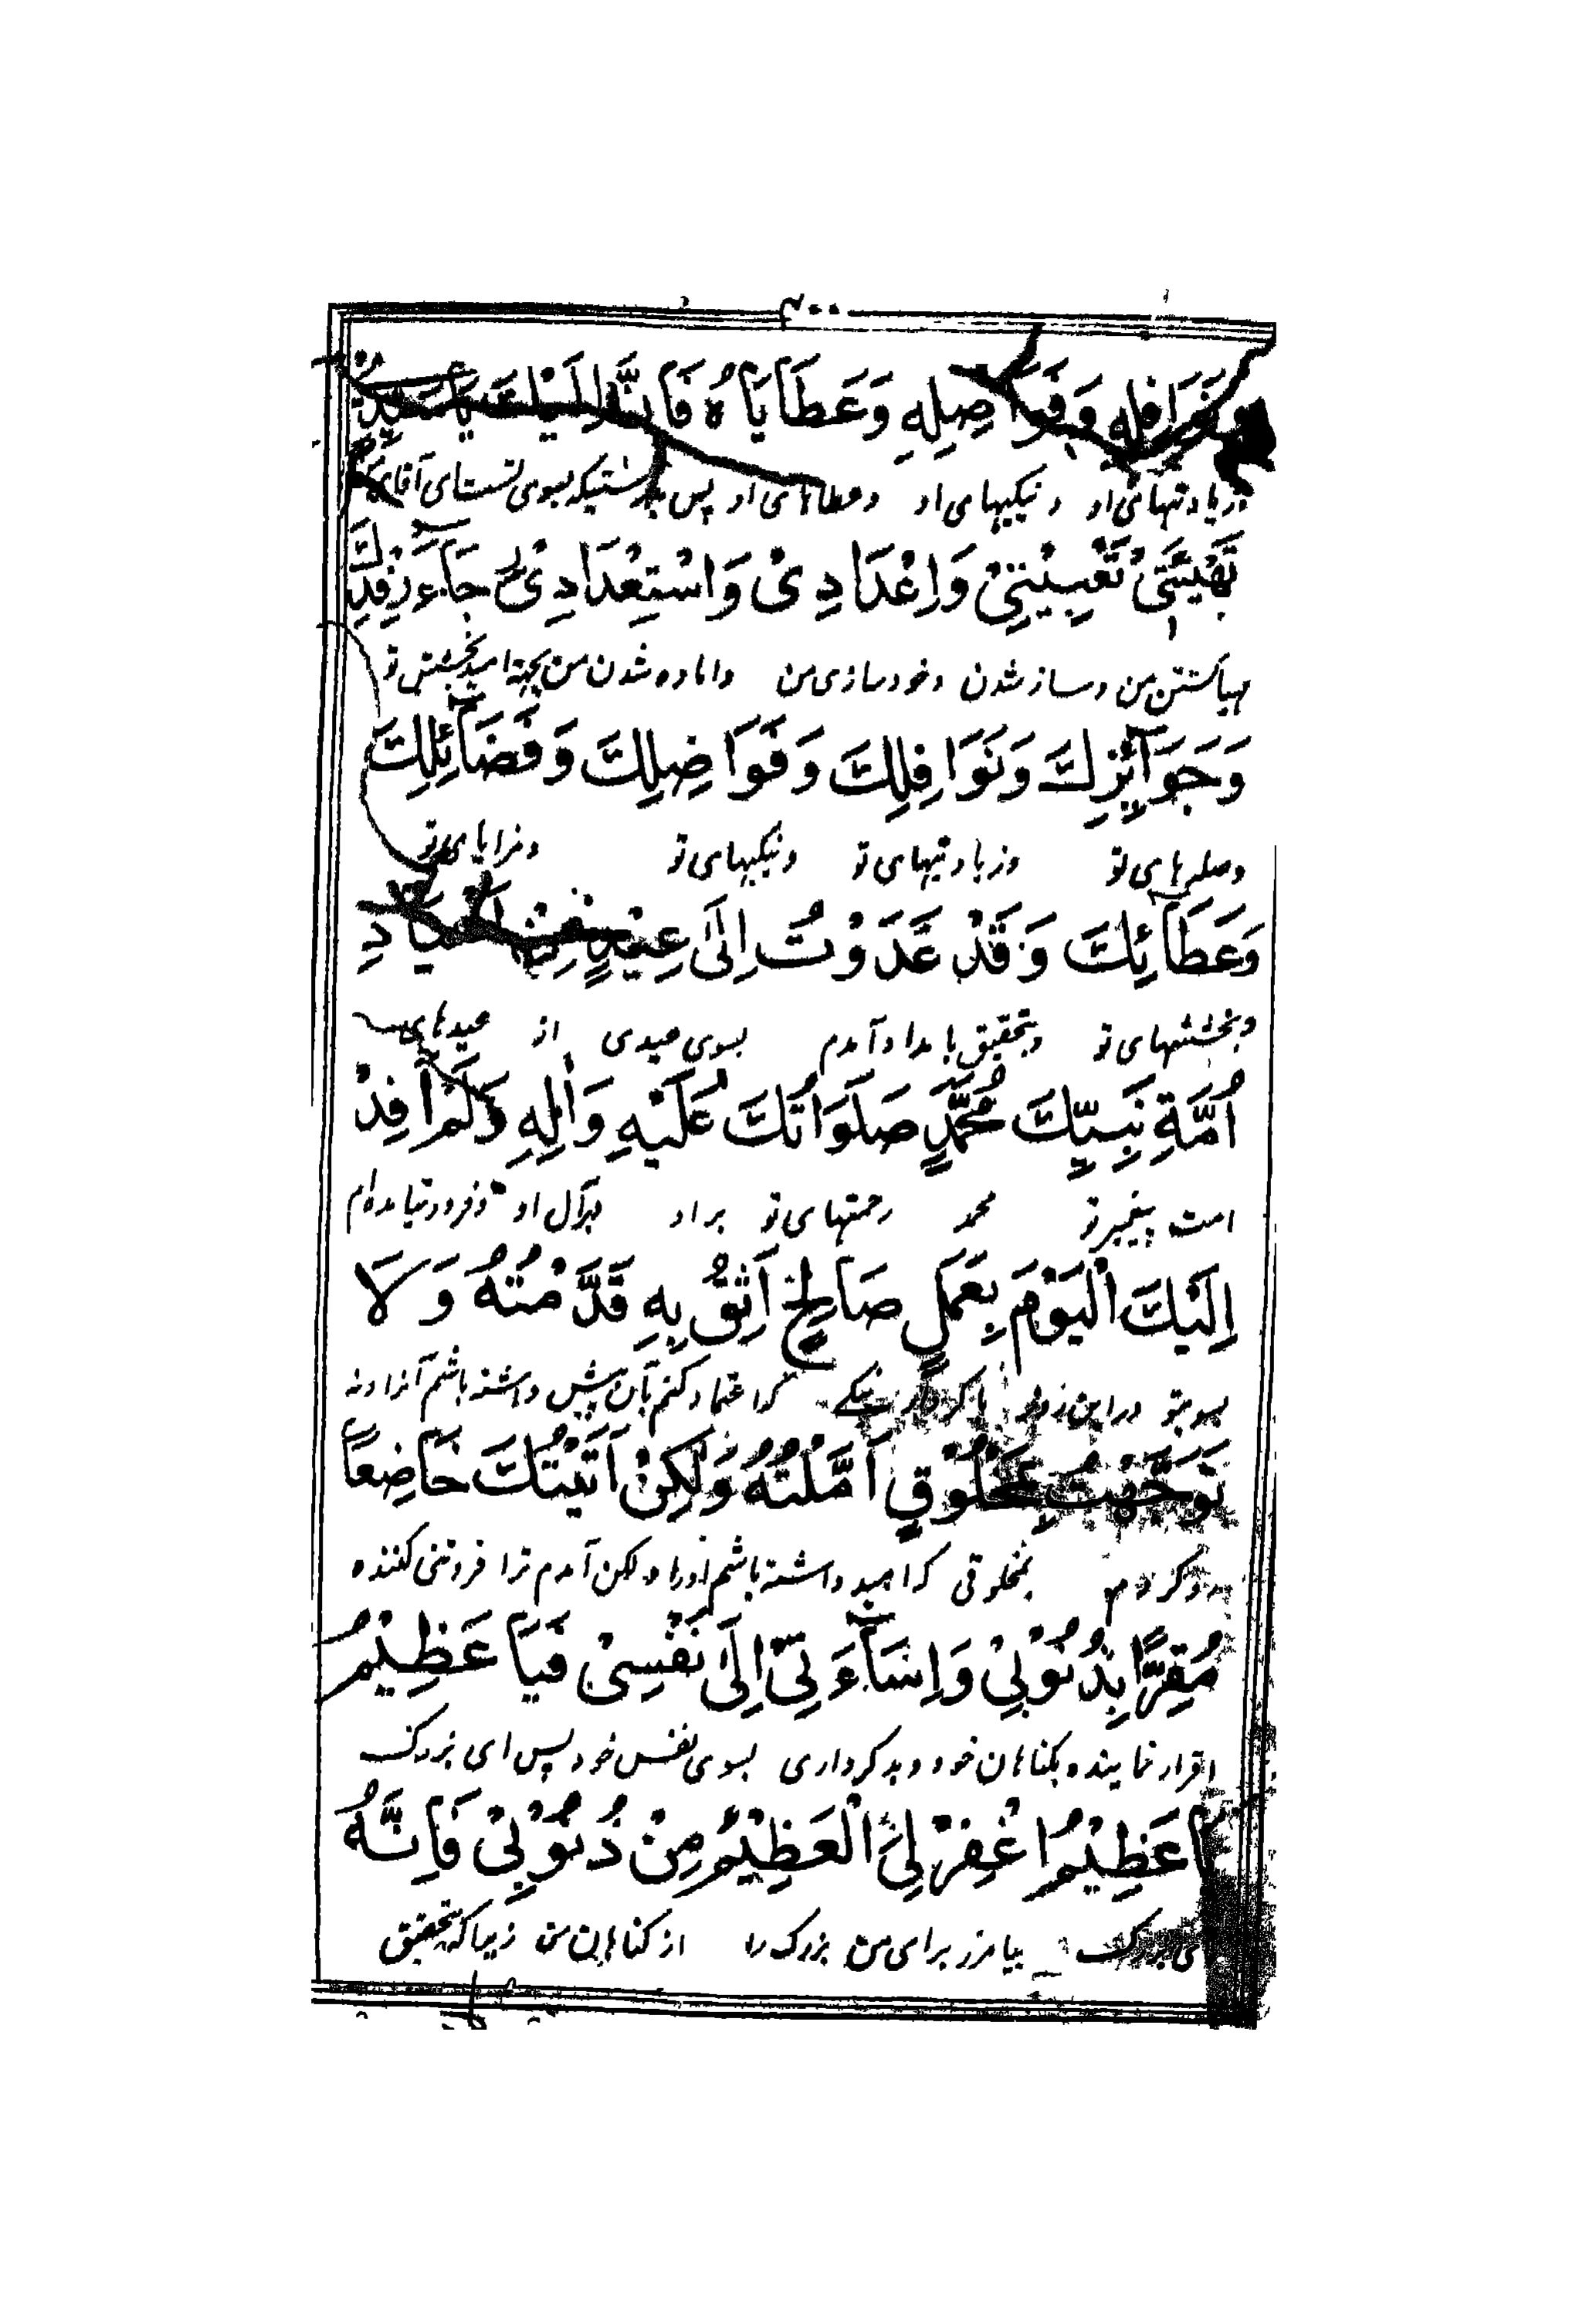 ۳۰۰
وَنَوَافِلِهِ وَفَوَاضِلِهِ وَعَطَايَاهُ فَاِنَّ اِلَيْكَ يَا سَيِّدِيْ
وزیادتیهای او و نیکیهای او و عطاهای او پس بدرستیکه بسوی تست ای آقای
تَهْيِئَتِيْ تَعْبِيْتِيْ وَاِعْدَادِيْ وَاسْتِعْدَادِيْ رَجَاءَ رِفْدِكَ
مهیا گشتن من و ساز شدن و خودسازی من و اماده شدن من بجهة امید بخشش تو
وَجَوَآئِزِكَ وَنَوَافِلِكَ وَفَوَاضِلِكَ وَفَضَآئِلِكَ
و صله های تو وزیادتیهای تو و نیکیهای تو و مزایای تو
وَعَطَآئِكَ وَقَدْ غَدَوْتُ اِلٰى عِيْدٍ مِنْ اَعْيَادِ
و بخششهای تو و بتحقیق بامداد آمدم بسوی عیدی از عیدهای
اُمَّةِ نَبِيِّكَ مُحَمَّدٍ صَلَوَاتُكَ عَلَيْهِ وَاٰلِهِ وَلَمْ اَفِدْ
امت پیغمبر تو محمد رحمتهای تو بر او و برآل او و فرود نیامده ام
اِلَيْكَ الْيَوْمَ بِعَمَلٍ صَالِحٍ اَثِقُ بِهِ قَدَّمْتُهُ وَلَا
بسویتو در این روز با کردار نیکی که اعتماد کنم بآن پیش داشته باشم آنرا و نه
تَوَجَّهْتُ بِمَخْلُوْقٍ اَمَّلْتُهُ وَلٰكِنْ اَتَيْتُكَ خَاضِعًا
رو کردم بمخلوقی که امید داشته باشم اورا و لکن آمدم ترا فروتنی کننده
مُقِرًّا بِذُنُوْبِيْ وَاِسَآءَتِيْ اِلٰى نَفْسِيْ فَيَا عَظِيْمُ
اقرار نماینده بگناهان خود و بد کرداری بسوی نفس خود پس ای بزرگ
يَا عَظِيْمُ اغْفِرْ لِيَ الْعَظِيْمَ مِنْ ذُنُوْبِيْ فَاِنَّهُ
ای بزرگ بیامرز برای من بزرگ را از گناهان من زیرا که بتحقیق